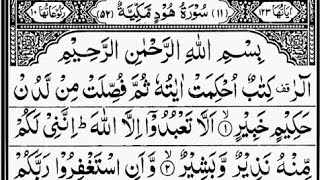 اٰيَاتُهَا ١٢٣ (١١) سُوْرَةُ هُوْدٍ مَّكِّيَّةٌ (٥٢) رُكُوْعَاتُهَا ١٠
بِسْمِ اللّٰهِ الرَّحْمٰنِ الرَّحِيْمِ
الٓرٰ قف كِتٰبٌ اُحْكِمَتْ اٰيٰتُهٗ ثُمَّ فُصِّلَتْ مِنْ لَّدُنْ
حَكِيْمٍ خَبِيْرٍ ۙ﴿۱﴾ اَلَّا تَعْبُدُوْۤا اِلَّا اللّٰهَ ؕ اِنَّنِيْ لَكُمْ
مِّنْهُ نَذِيْرٌ وَّبَشِيْرٌ ۙ﴿۲﴾ وَّاَنِ اسْتَغْفِرُوْا رَبَّكُمْ